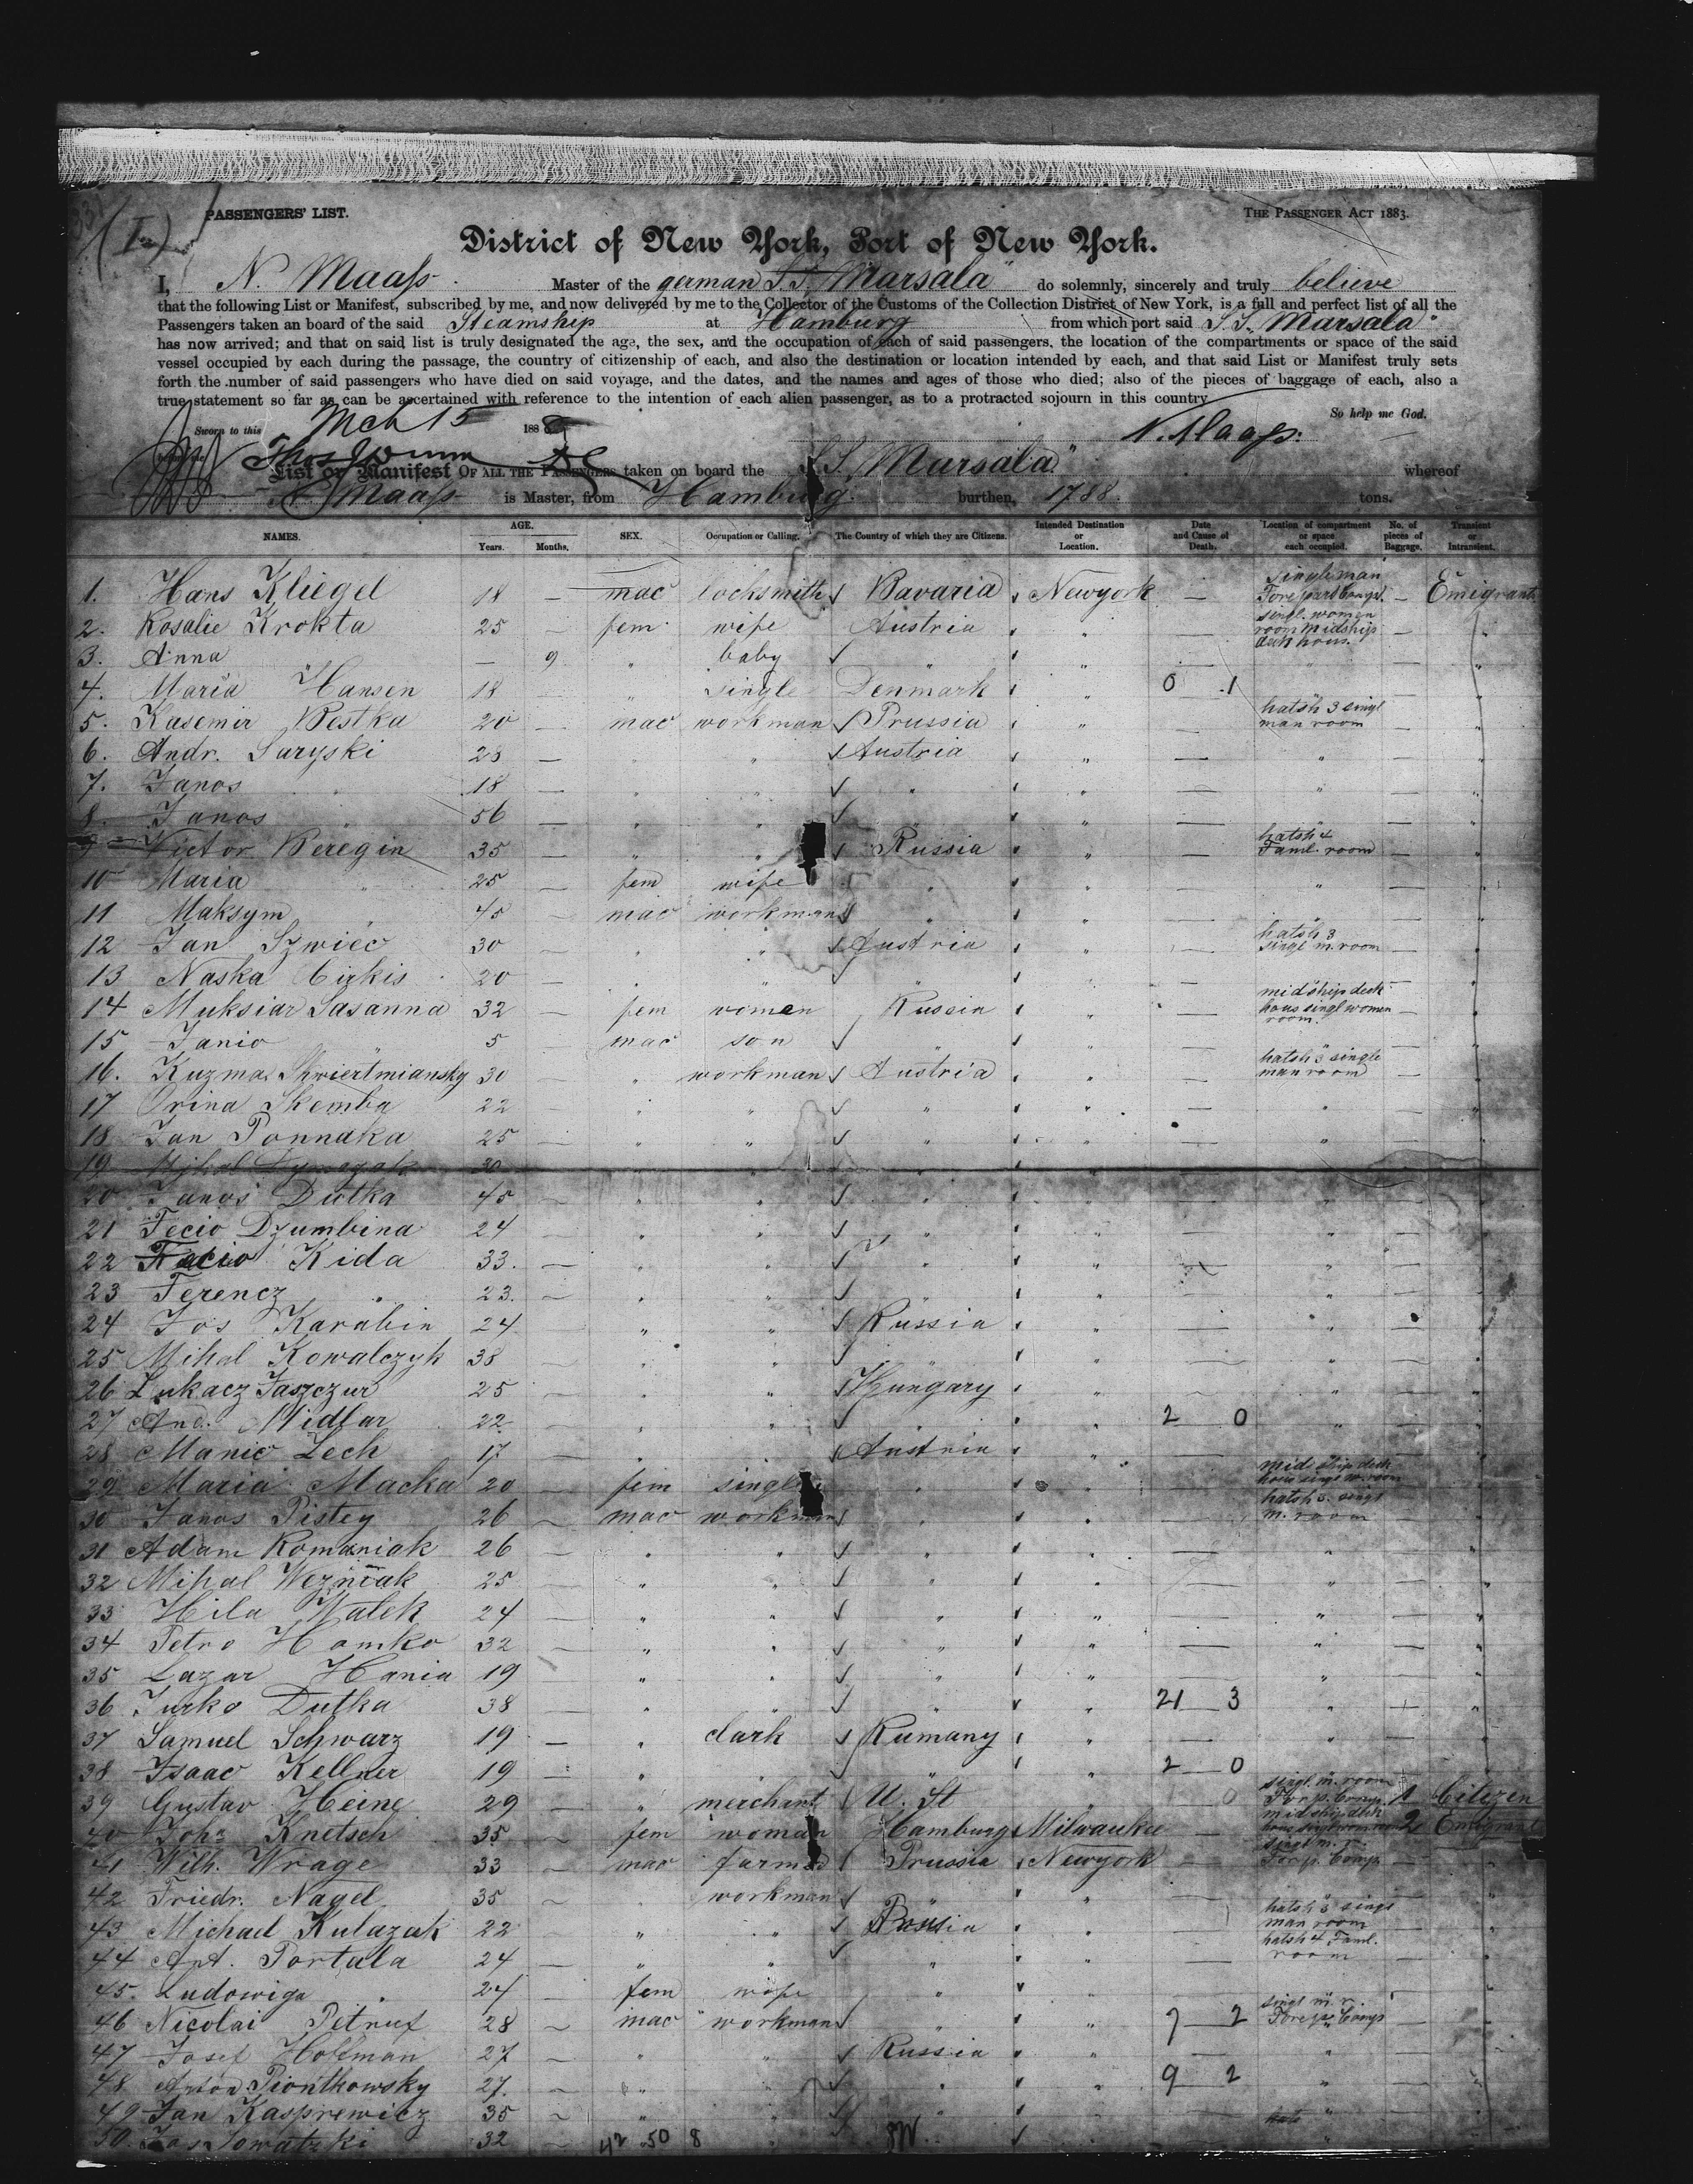 (I)
PASSENGERS' LIST.
THE PASSENGER ACT 1883.
District of New York, Port of New York.
I, N. Maass Master of the german S.S. "Marsala" do solemnly, sincerely and truly believe
that the following List or Manifest, subscribed by me, and now delivered by me to the Collector of the Customs of the Collection District of New York, is a full and perfect list of all the
Passengers taken an board of the said Steamship at Hamburg from which port said S.S. "Marsala"
has now arrived; and that on said list is truly designated the age, the sex, and the occupation of each of said passengers, the location of the compartments or space of the said
vessel occupied by each during the passage, the country of citizenship of each, and also the destination or location intended by each, and that said List or Manifest truly sets
forth the number of said passengers who have died on said voyage, and the dates, and the names and ages of those who died; also of the pieces of baggage of each, also a
true statement so far as can be ascertained with reference to the intention of each alien passenger, as to a protracted sojourn in this country
So help me God.
Sworn to this Mch 15 188
N. Maass.
List or Manifest OF ALL THE PASSENGERS taken on board the S.S. "Marsala" whereof
N. Maass is Master, from Hamburg. burthen, 1788. tons.
NAMES. AGE. Years. Months. SEX. Occupation or Calling. The Country of which they are Citizens. Intended Destination or Location. Date and Cause of Death. Location of compartment or space each occupied. No. of pieces of Baggage. Transient or Intransient.
1. Hans Kliegel 18 — mac locksmith Bavaria Newyork — singleman Forepart Comp. — Emigrant
2. Rosalie Krokta 25 — fem wife Austria " — singl. women room midship deck hous — "
3. Anna " — 9 " baby " " — " "
4. Maria Hansen 18 — " single Denmark " 0 1 " "
5. Kasemir Bestka 20 — mac workman Prussia " — hatsh 3 singl man room — "
6. Andr. Saryski 23 — " " Austria " — " — "
7. Janos " 18 — " " " " — " — "
8. Janos " 56 — " " " " — " — "
9 Victor Beregin 35 — " " Russia " — hatsh 4 Faml. room — "
10 Maria " 25 — fem wife " " — " — "
11 Maksym " 45 — mac workman " " — " — "
12 Jan Szwiec 30 — " " Austria " — hatsh 3 singl m. room — "
13 Naska Cirkis 20 — " " " " — " — "
14 Muksiar Sasanna 32 — fem women Russia " — midship deck hous singl women room. — "
15 Janio " 5 — mac son " " — " — "
16. Kuzma Skwiertmiansky 30 — " workman Austria " — hatsh 3 single man room — "
17 Orina Skemba 22 — " " " " — " — "
18 Jan Ponnaka 25 — " " " " — " — "
19 30 " " " "
20 Janos Dutka 45 — " " " " — " — "
21 Fecio Dzumbina 24 — " " " " — " — "
22 Kida 33. — " " " " — " — "
23 Ferencz " 23. — " " " " — " — "
24 Jos Karabin 24 — " " Russia " — " — "
25 Mihal Kowalczyk 38 — " " " " — " — "
26 Lukacz Jaszczur 25 — " " Hungary " — " — "
27 And. Midlar 22 — " " " " 2 0 " — "
28 Manic Zech 17 — " " Austria " — " — "
29 Maria Macka 20 — fem single " " — midship deck hous singl w. room — "
30 Janos Pistey 26 — mac workman " " — hatsh 3. singl m. room — "
31 Adam Romaniak 26 — " " " " — " — "
32 Mihal Wezniak 25 — " " " " — " — "
33 Hila Walek 24 — " " " " — " — "
34 Petro Homko 32 — " " " " — " — "
35 Lazar Hania 19 — " " " " — " — "
36 Jurko Dutka 38 — " " " " 21 3 " — "
37 Samuel Schwarz 19 — " clark Rumany " — " — "
38 Isaac Kellner 19 — " " " " 2 0 " — "
39 Gustav Heine 29 — " merchant U. St " 0 singl. m. room For p. Comp. 1 Citizen
40 Johs Knetsch 35 — fem woman Hamburg Milwaukee — midship deck 2 Emigrant
41 Wilh. Wrage 33 — mac farmer Prussia Newyork — singl m. r. For p. Comp — "
42 Friedr. Nagel 35 — " workman " " — " — "
43 Michael Kulazak 22 — " " " — hatsh 3 singl man room — "
44 Ant. Portala 24 — " " " " — hatsh 4 Faml. room — "
45. Ludowiga " 24 — fem wife " " — " — "
46 Nicolai Petruf 28 — mac workman " " 7 2 singl m. r. Forep. Comp — "
47 Josef Hoffman 27 — " " Russia " — " — "
48 Anton Piontkowsky 27. — " " " " 9 2 " — "
49 Jan Kasprewicz 35 — " " " " — " — "
50. Jos Nowatzki 32 — " " " "
42 50 8